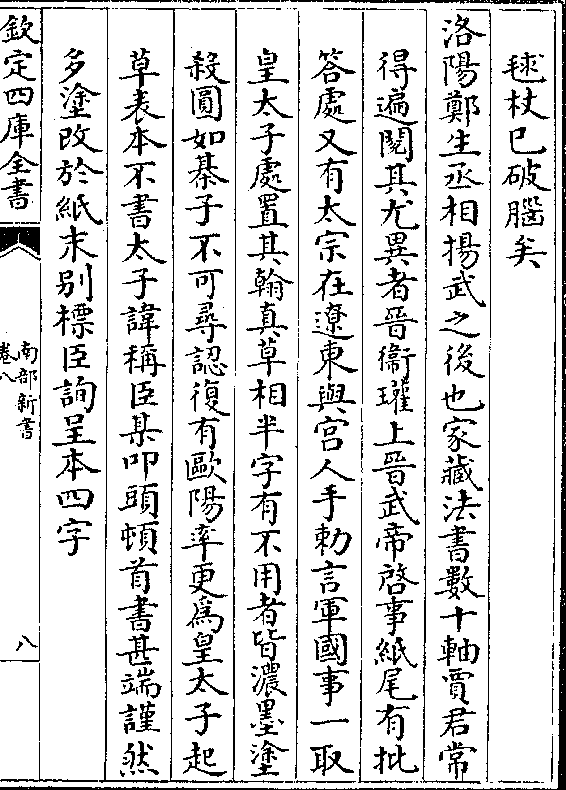 毬杖已破腦矣
洛陽鄭生丞相揚武之後也家藏法書數十軸賈君常
得遍閱其尤異者晉衞瓘上晉武帝啓事紙尾有批
答處又有太宗在遼東與宮人手勅言軍國事一取
皇太子處置其翰真草相半字有不用者皆濃墨塗
殺圓如棊子不可尋認復有歐陽率更為皇太子起
草表本不書太子諱稱臣某叩頭頓首書甚端謹然
多塗改於紙末別標臣詢呈本四字
欽定四庫全書
南部新書
卷八
八